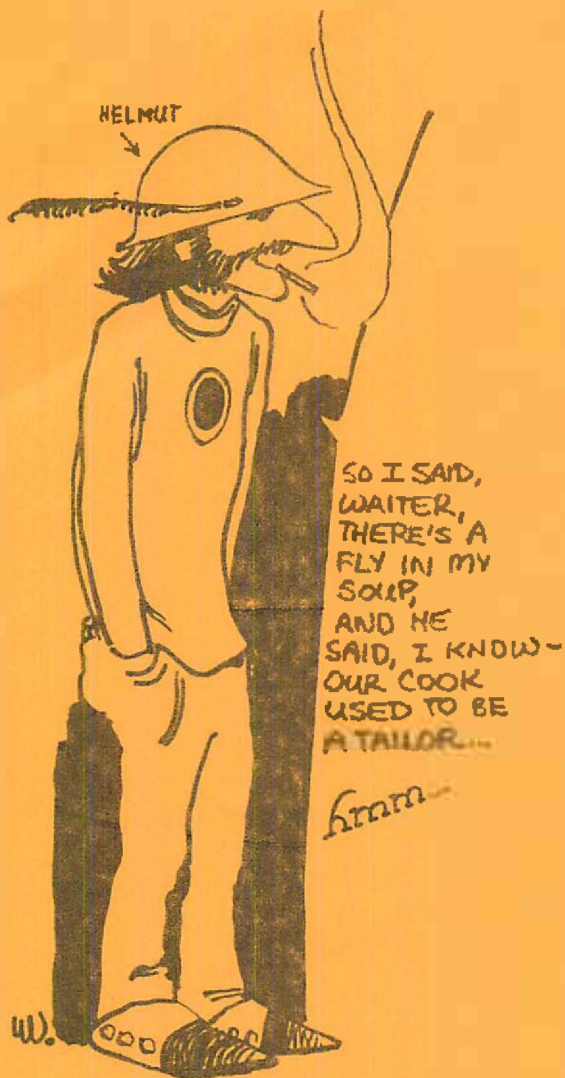 HELMUT
SO I SAID,
WAITER,
THERE'S A
FLY IN MY
SOUP,
AND HE
SAID, I KNOW-
OUR COOK
USED TO BE
A TAILOR...
hmm...
W.